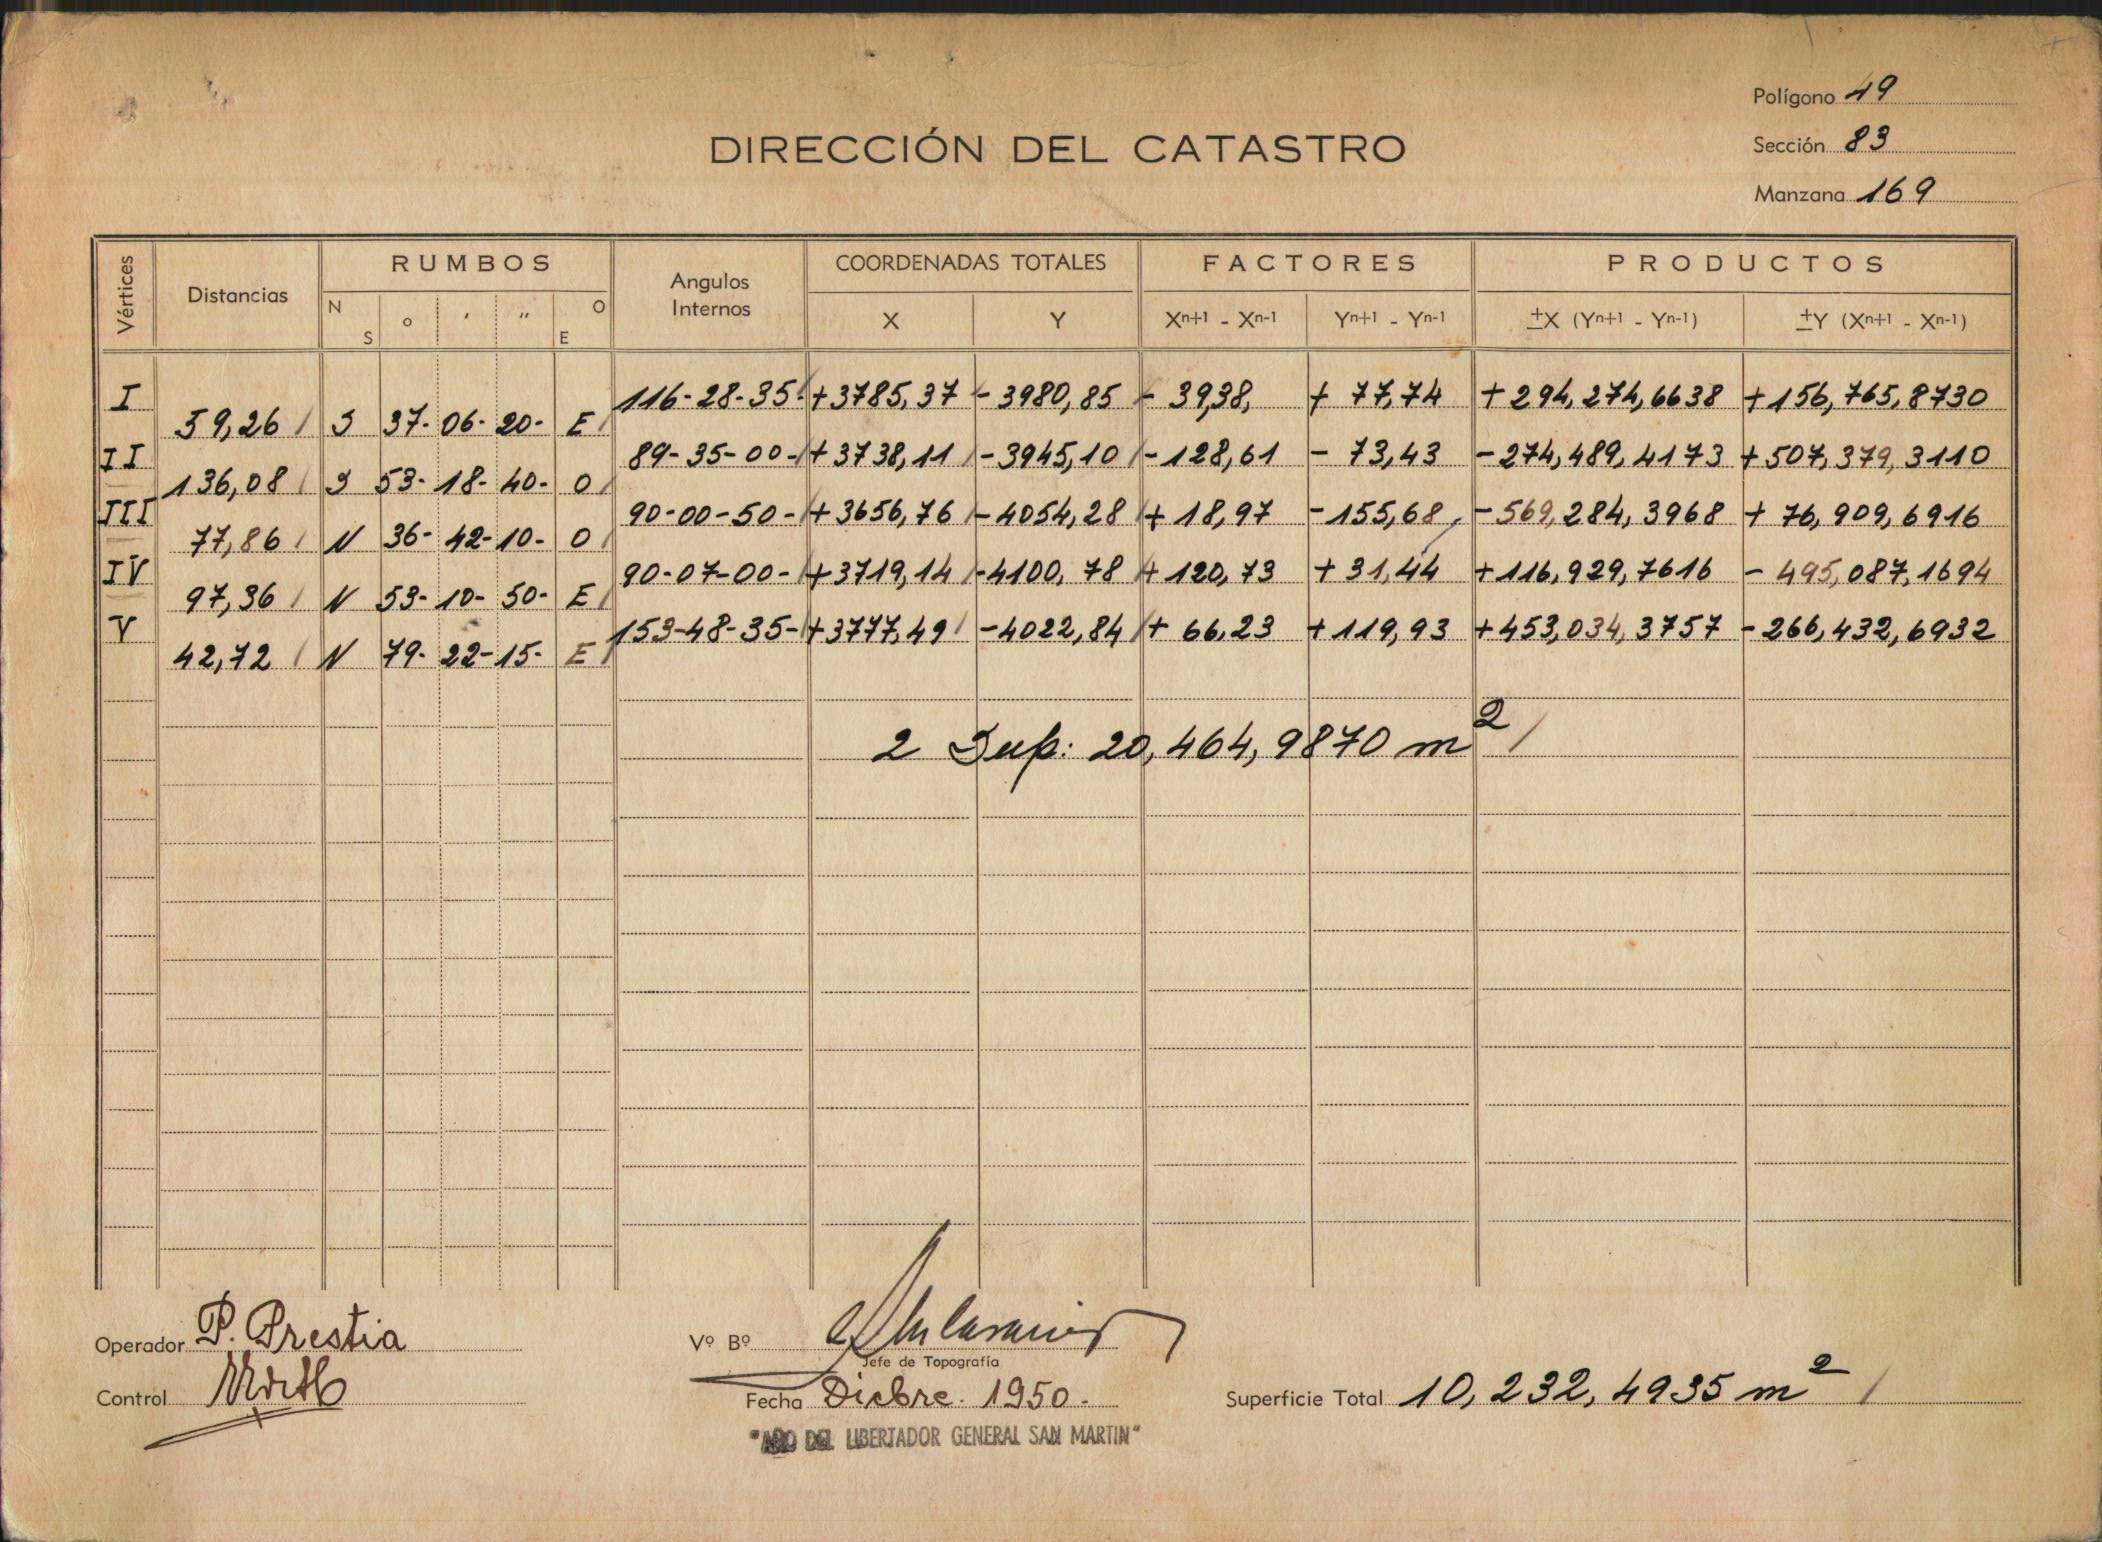 Polígono 49
DIRECCIÓN DEL CATASTRO
Sección 83
Manzana 169
Vértices Distancias RUMBOS Angulos Internos COORDENADAS TOTALES FACTORES PRODUCTOS
N S o ' " O E X Y Xn+1 - Xn-1 Yn+1 - Yn-1 ±X (Yn+1 - Yn-1) ±Y (Xn+1 - Xn-1)
I 116-28-35- +3785,37 -3980,85 - 39,38, + 77,74 +294,274,6638 +156,765,8730
59,26 S 37- 06- 20- E
II 89-35-00- +3738,11 -3945,10 -128,61 - 73,43 -274,489,4173 +507,379,3110
136,08 S 53- 18- 40- O
III 90-00-50- +3656,76 -4054,28 +18,97 -155,68 -569,284,3968 + 76,909,6916
77,86 N 36- 42- 10- O
IV 90-07-00- +3719,14 -4100,78 +120,73 +31,44 +116,929,7616 - 495,087,1694
97,36 N 53- 10- 50- E
V 153-48-35- +3777,49 -4022,84 + 66,23 +119,93 +453,034,3757 -266,432,6932
42,72 N 79- 22- 15- E
2 Sup: 20,464,9870 m²
Operador P. Prestia
Vº Bº
Jefe de Topografía
Control
Fecha Dicbre. 1950.
Superficie Total 10,232,4935 m²
"AÑO DEL LIBERTADOR GENERAL SAN MARTIN"